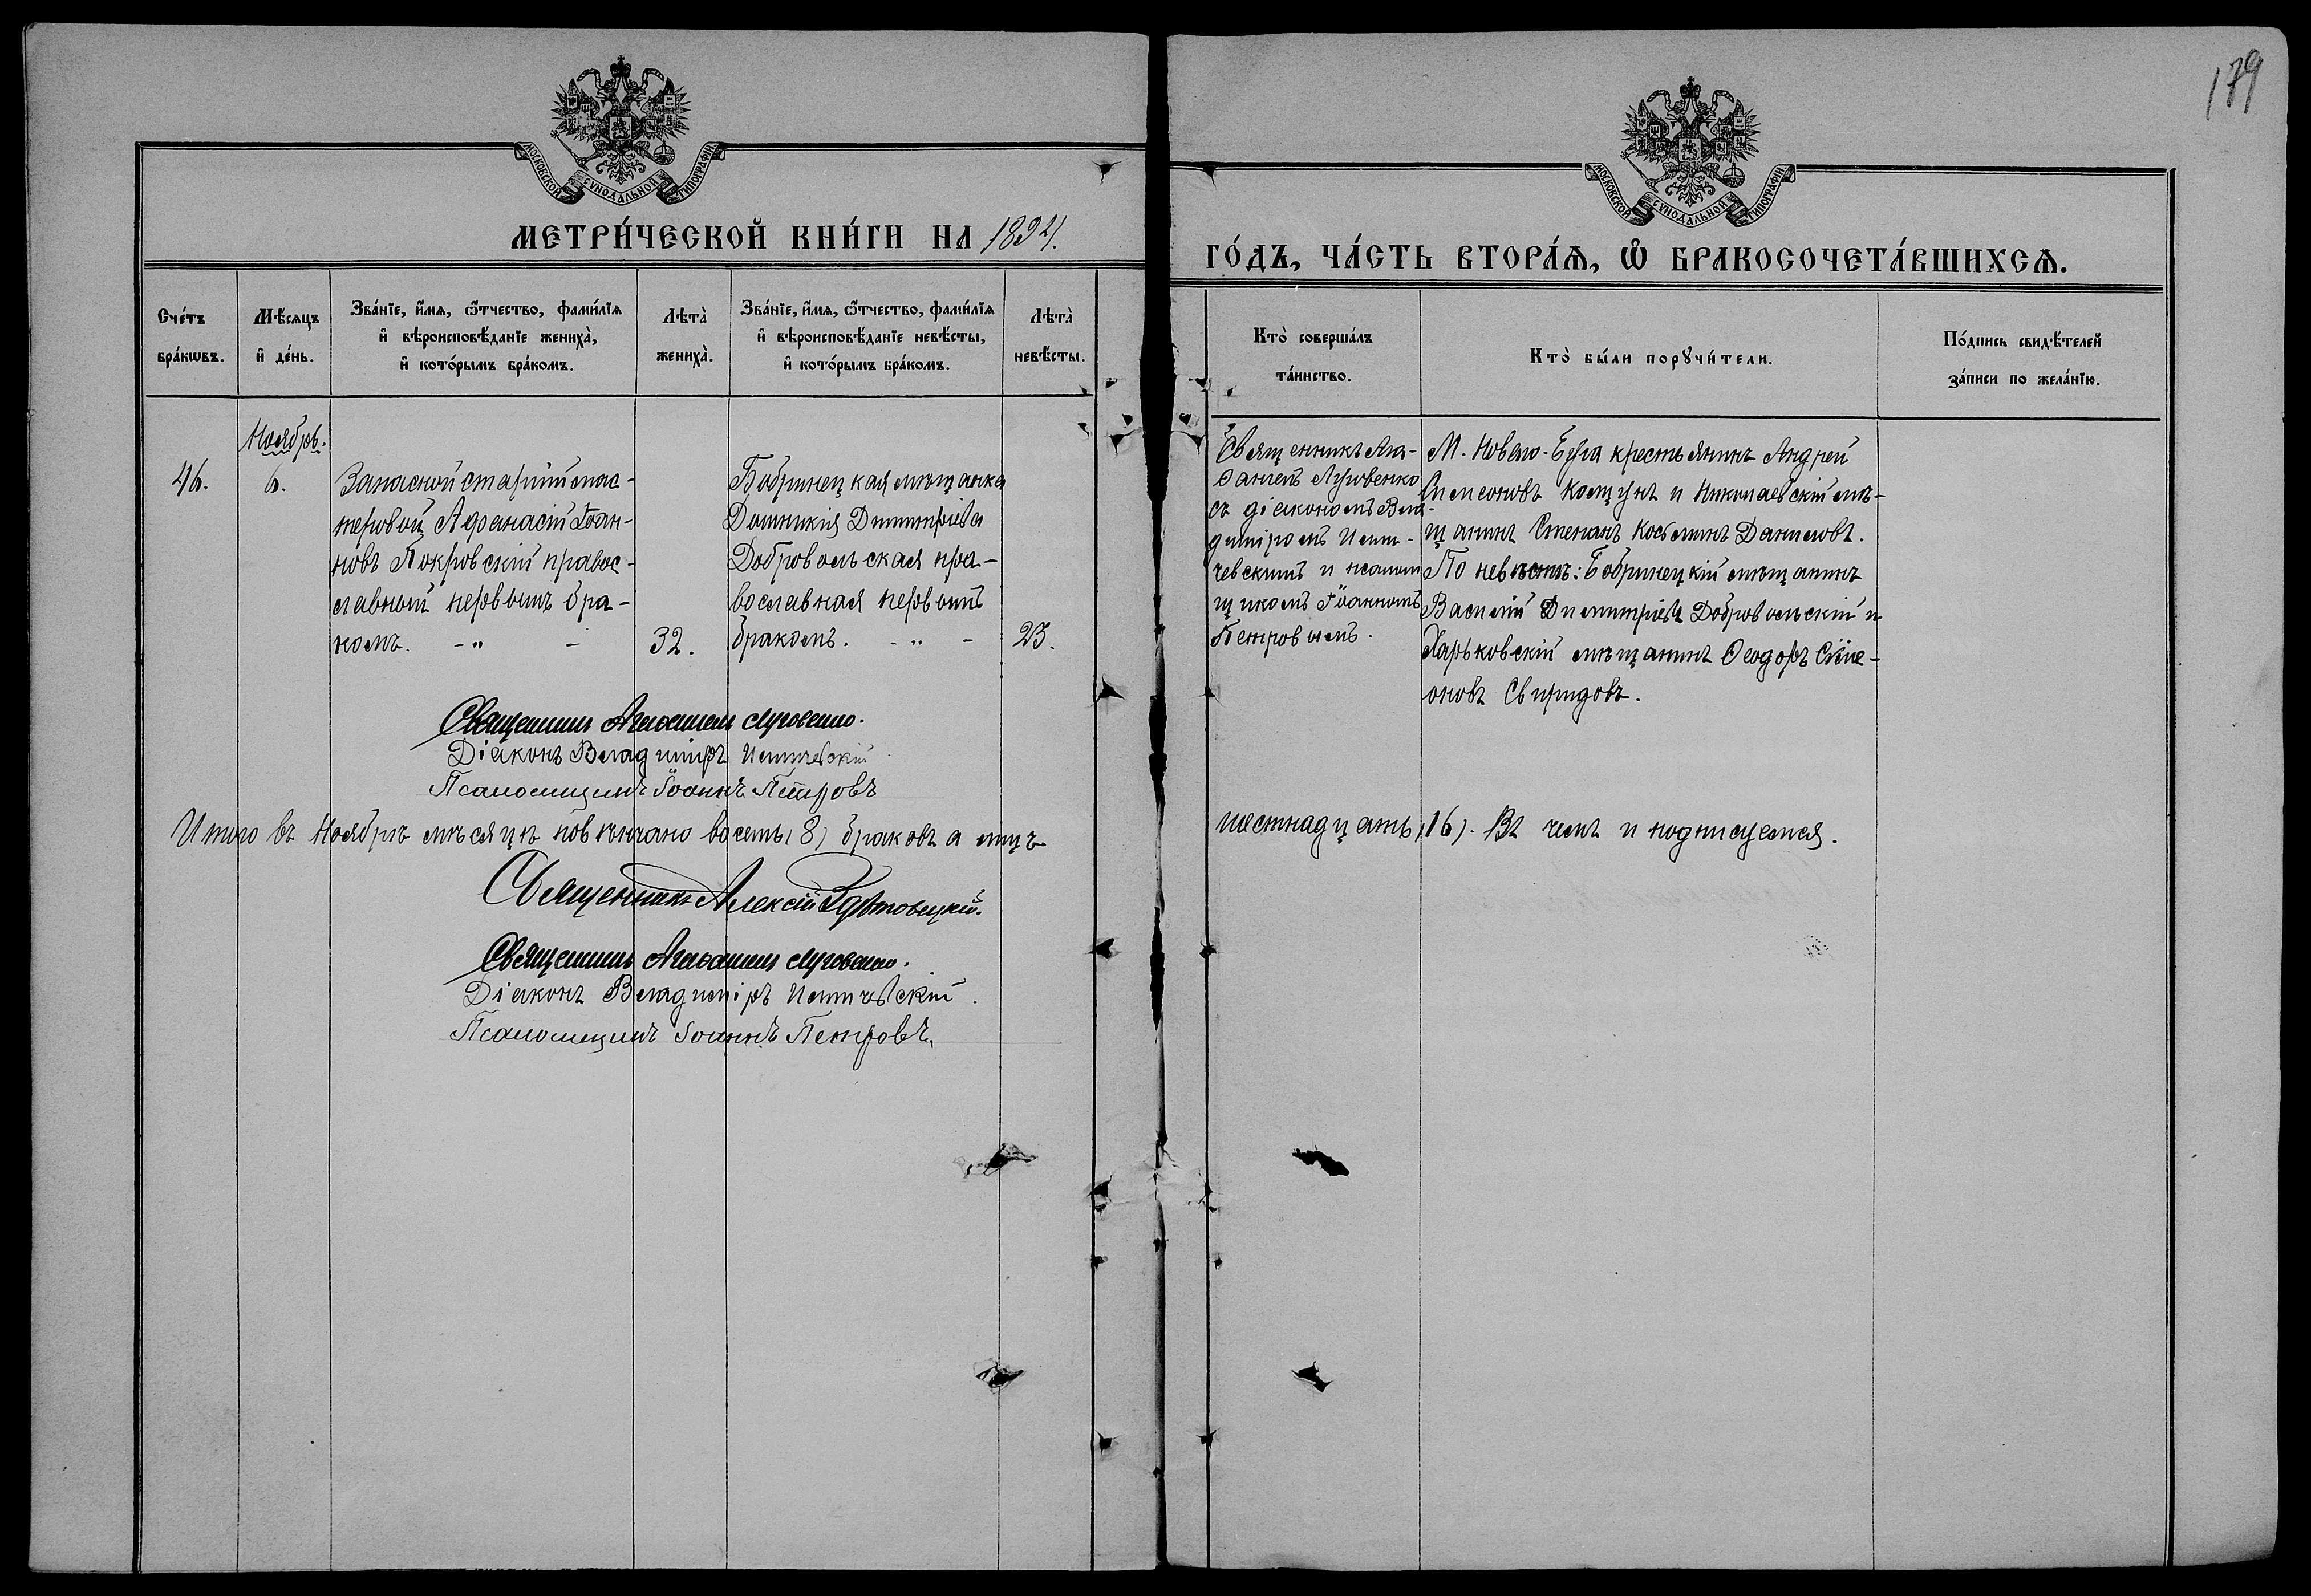 179
МОСКОВСКОЙ СѴНОДАЛЬНОЙ ТИПОГРАФІИ
МОСКОВСКОЙ СѴНОДАЛЬНОЙ ТИПОГРАФІИ
МЕТРИ́ЧЕСКОЙ КНИ́ГИ НА 1894.
ГО́ДЪ, ЧА́СТЬ ВТОРА́Ѧ, Ѽ БРАКОСОЧЕТА́ВШИХСѦ.
Сче́тъ бра́кѡвъ.
Мѣ́сяцъ и҆ де́нь.
Зва́нїе, и҆́мѧ, ѻ҆́тчество, фами́лїѧ
и҆ вѣроисповѣ́данїе жениха̀,
и҆ кото́рымъ бра́комъ.
Лѣта̀ жениха̀.
Зва́нїе, и҆́мѧ, ѻ҆́тчество, фами́лїѧ
и҆ вѣроисповѣ́данїе невѣ́сты,
и҆ кото́рымъ бра́комъ.
Лѣта̀ невѣ́сты.
Кто̀ соверша́лъ та́инство.
Кто̀ бы́ли порꙋчи́тели.
По́дпись свидѣ́телей
за́писи по жела́нїю.
Ноябрь.
46.
6.
Запасной старшій мас-
теровой Афанасій Іоан-
новъ Покровскій правос-
лавный первымъ бра-
комъ. - " -
32.
Бобринецкая мѣщанка
Домникія Димитріева
Добровольская пра-
вославная первымъ
бракомъ. - " -
23.
Священникъ Ага-
ѳангелъ Луговенко
съ діакономъ Вла-
диміромъ Ильи-
чевскимъ и псалом
щикомъ Іоанномъ
Петровымъ.
М. Новаго-Буга крестьянинъ Андрей
Симеоновъ Колтунъ и Николаевскій мѣ-
щанинъ Стефанъ Косьминъ Даниловъ.
По невѣстѣ: Бобринецкій мѣщанинъ
Василій Димитріевъ Добровольскій и
Харьковскій мѣщанинъ Ѳеодоръ Симе-
оновъ Свиридовъ.
Священникъ Агаѳангелъ Луговенко.
Діаконъ Владиміръ Ильичевскій
Псаломщикъ Іоаннъ Петровъ
Итого въ Ноябрѣ мѣсяцѣ повѣнчано восемь (8) браковъ а лицъ
шестнадцать (16). Въ чемъ и подписуемся.
Священникъ Алексій
Священникъ Агаѳангелъ Луговенко.
Діаконъ Владиміръ Ильичевскій.
Псаломщикъ Іоаннъ Петровъ.